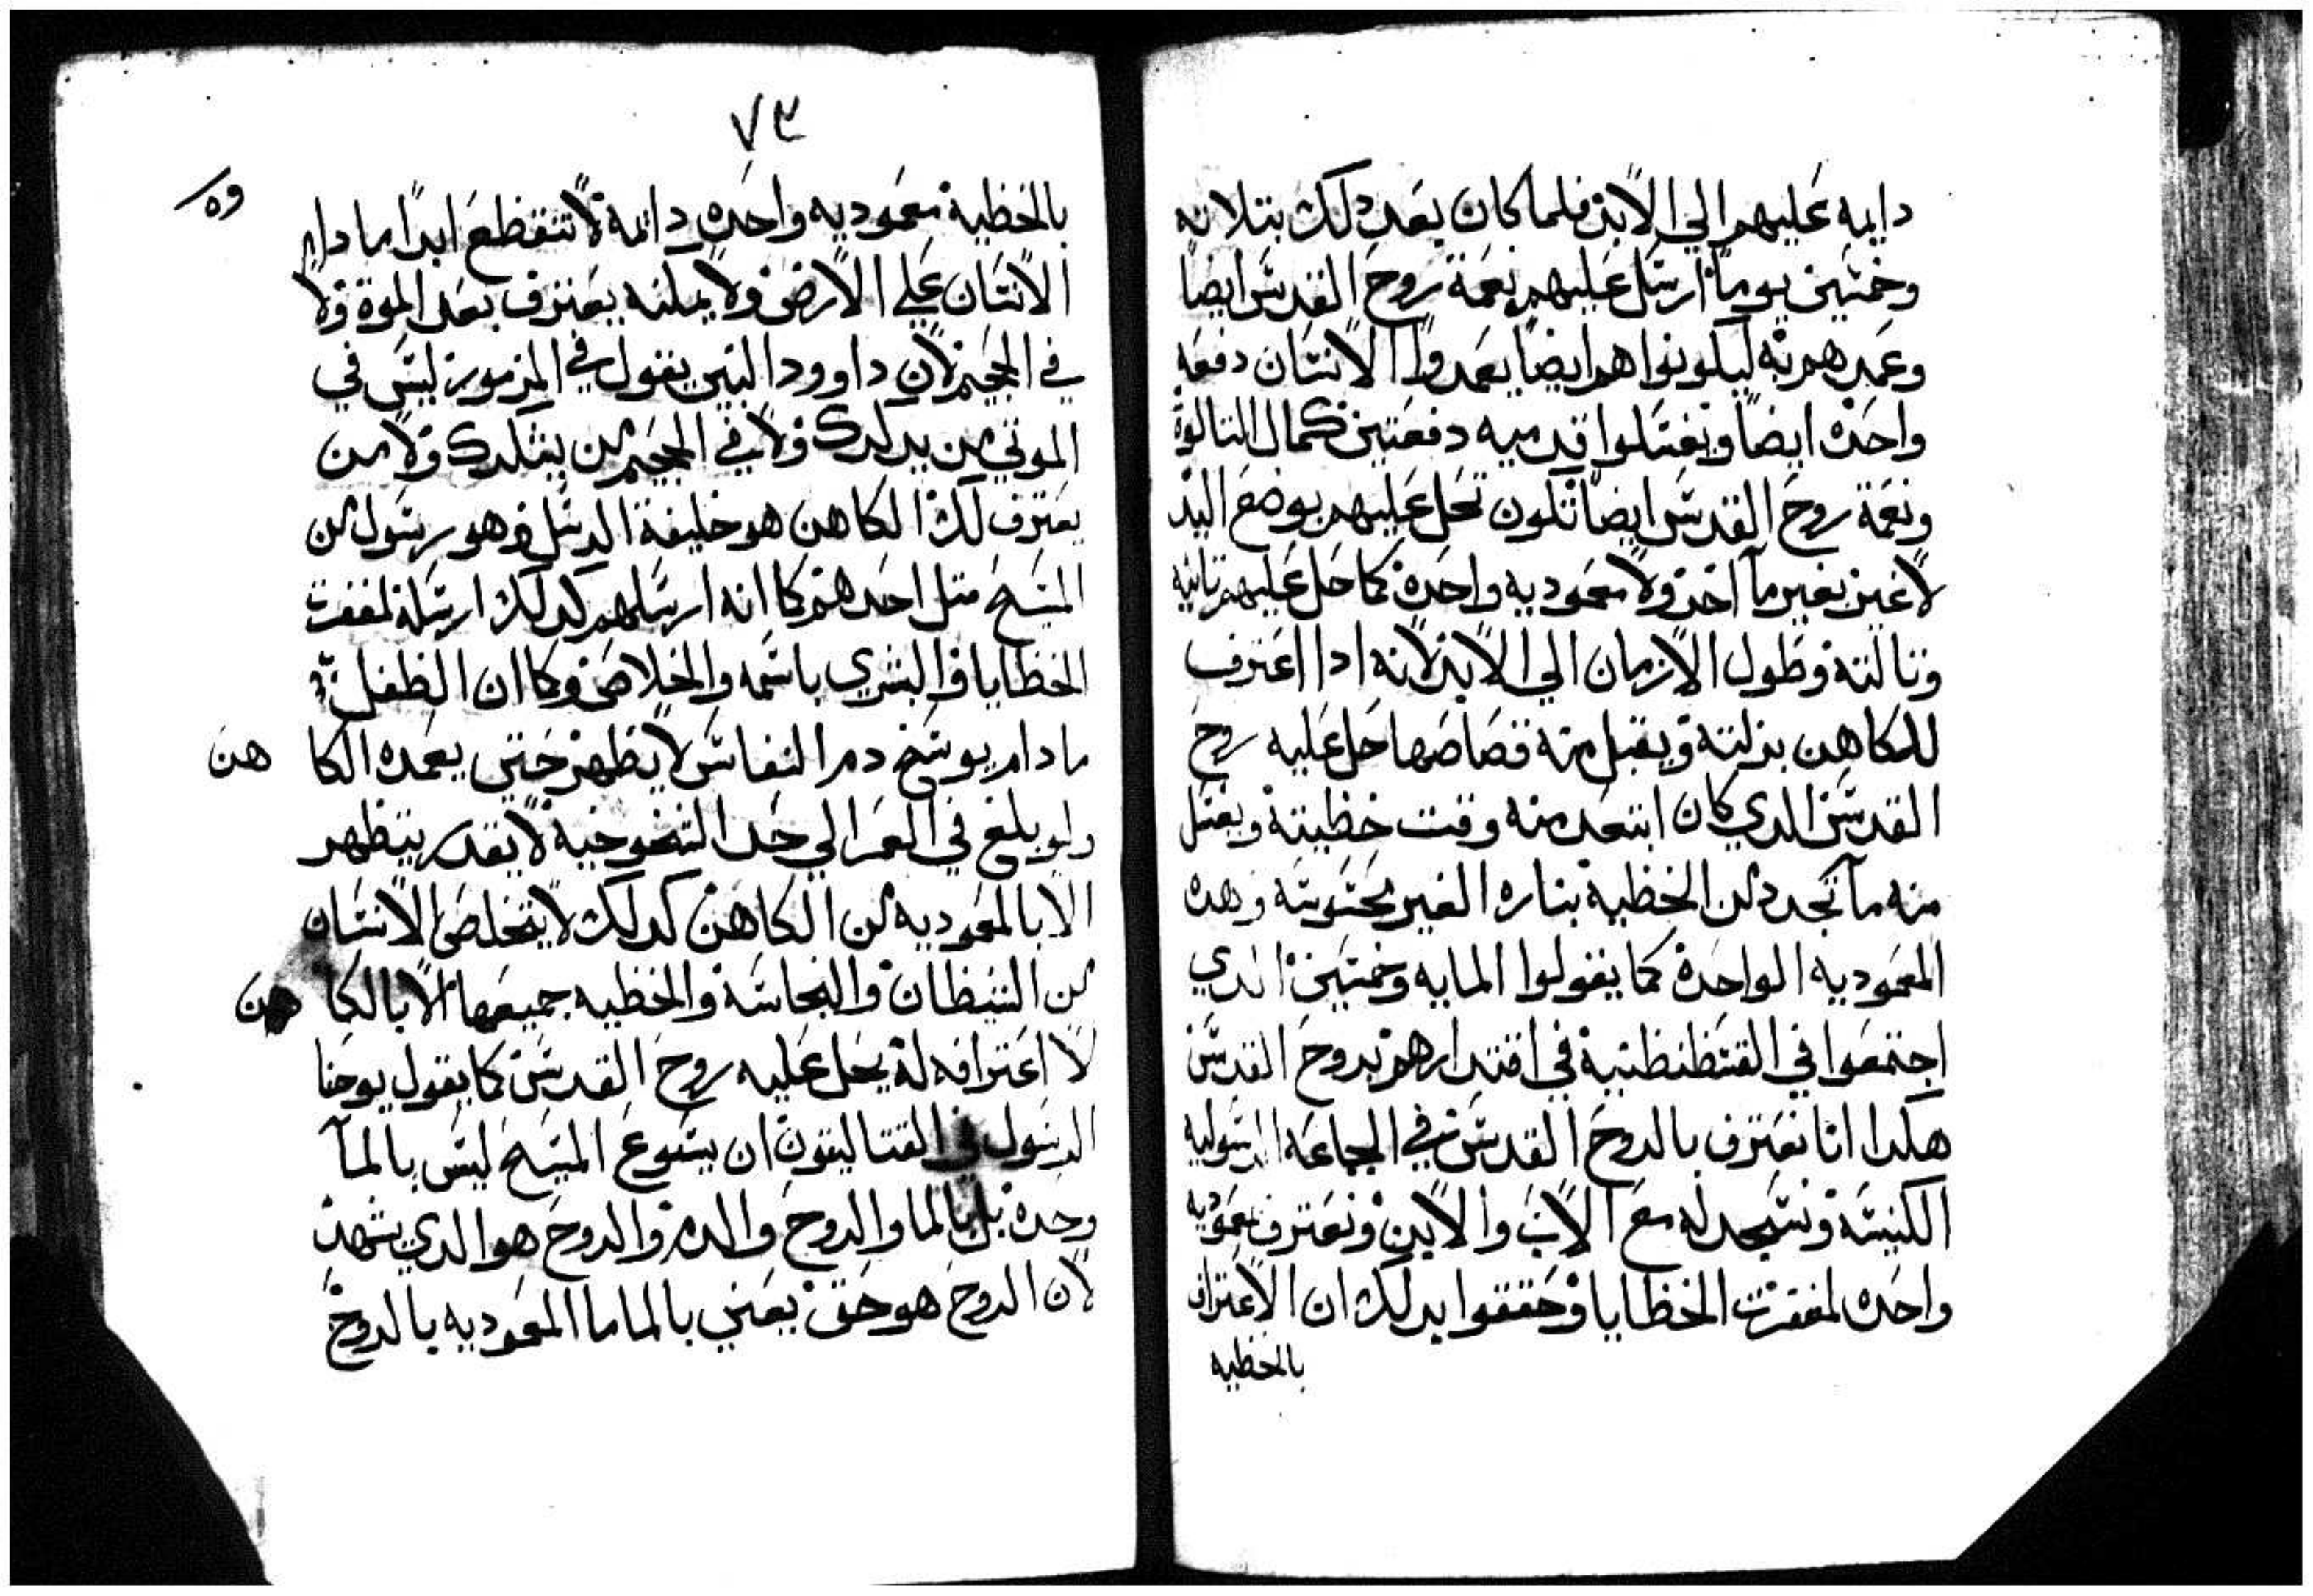 دايمه عليهم الي الابد فلما كان بعد دلك بتلاته
وخمسين يوماً ارسل عليهم نعمة روح القدس ايضا
وعمدهم به ليكونوا هم ايضا يعمدوا الانسان دفعه
واحده ايضاً ويغسلوا قدميه دفعتين كمال التالوة
ونعمة روح القدس ايضاً تكون تحل عليهم بوضع اليد
لا غير بغير مآ اخد ولا معموديه واحدة كما حل عليهم تانيه
وتالتة وطول الازمان الي الابد لانه ادا اعترف
للكاهن بزلته ويقبل منه قصاصها حل عليه روح
القدس الدي كان ابتعد منه وقت خطيته ويغسل
منه مآ تجدد من الخطية بناره الغير محسوسه وهده
المعموديه الواحدة كما يقولوا المايه وخمسين الدي
اجتمعوا في القسطنطنية في اقتدارهم بروح القدس
هكدا انا نعترف بالروح القدس في الجماعه الرسوليه
الكنيسه ونسجد له مع الاب والابن ونعترف بمعموديه
واحده لمغفرت الخطايا وحققوا بدلك ان الاعتراف
بالخطيه
٧٣
بالخطية معموديه واحده دائمة لا تنقطع ابداً ما دام
الانسان علي الارض ولا يمكنه يعترف بعد الموة ولا
في الجحيم لان داوود النبي يقول في المزمور ليس في
الموتي من يدكرك ولا في الجحيم من يشكرك ولا من
يعترف لك الكاهن هو خليفة الرسل وهو رسول من
المسيح متل احدهم كما انه ارسلهم كدلك ارسله لمغفرت
الخطايا والبشري باسمه والخلاص وكما ان الطفل
ما دام بوسخ دم النفاس لا يطهر حتي يعمده الكا هن
ولو بلغ في العمر الي حد الشخوخية لا يقدر يتطهر
الا بالمعموديه من الكاهن كدلك لا يتخلص الانسان
من الشيطان والنجاسة والخطيه جميعها الا بالكا هن
لا اعترافه له يحل عليه روح القدس كما يقول يوحنا
الرسول في القتاليقون ان يسوع المسيح ليس بالمآ
وحده بل بالما والروح والدم والروح هو الدي يشهد
لان الروح هو حق يعني بالما ما المعموديه بالروح